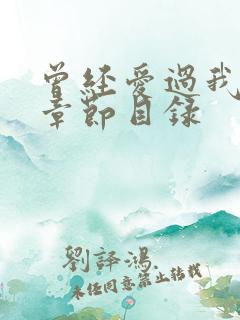 曾经爱過我
章節目錄
劉譯鴻
未經同意禁止轉載